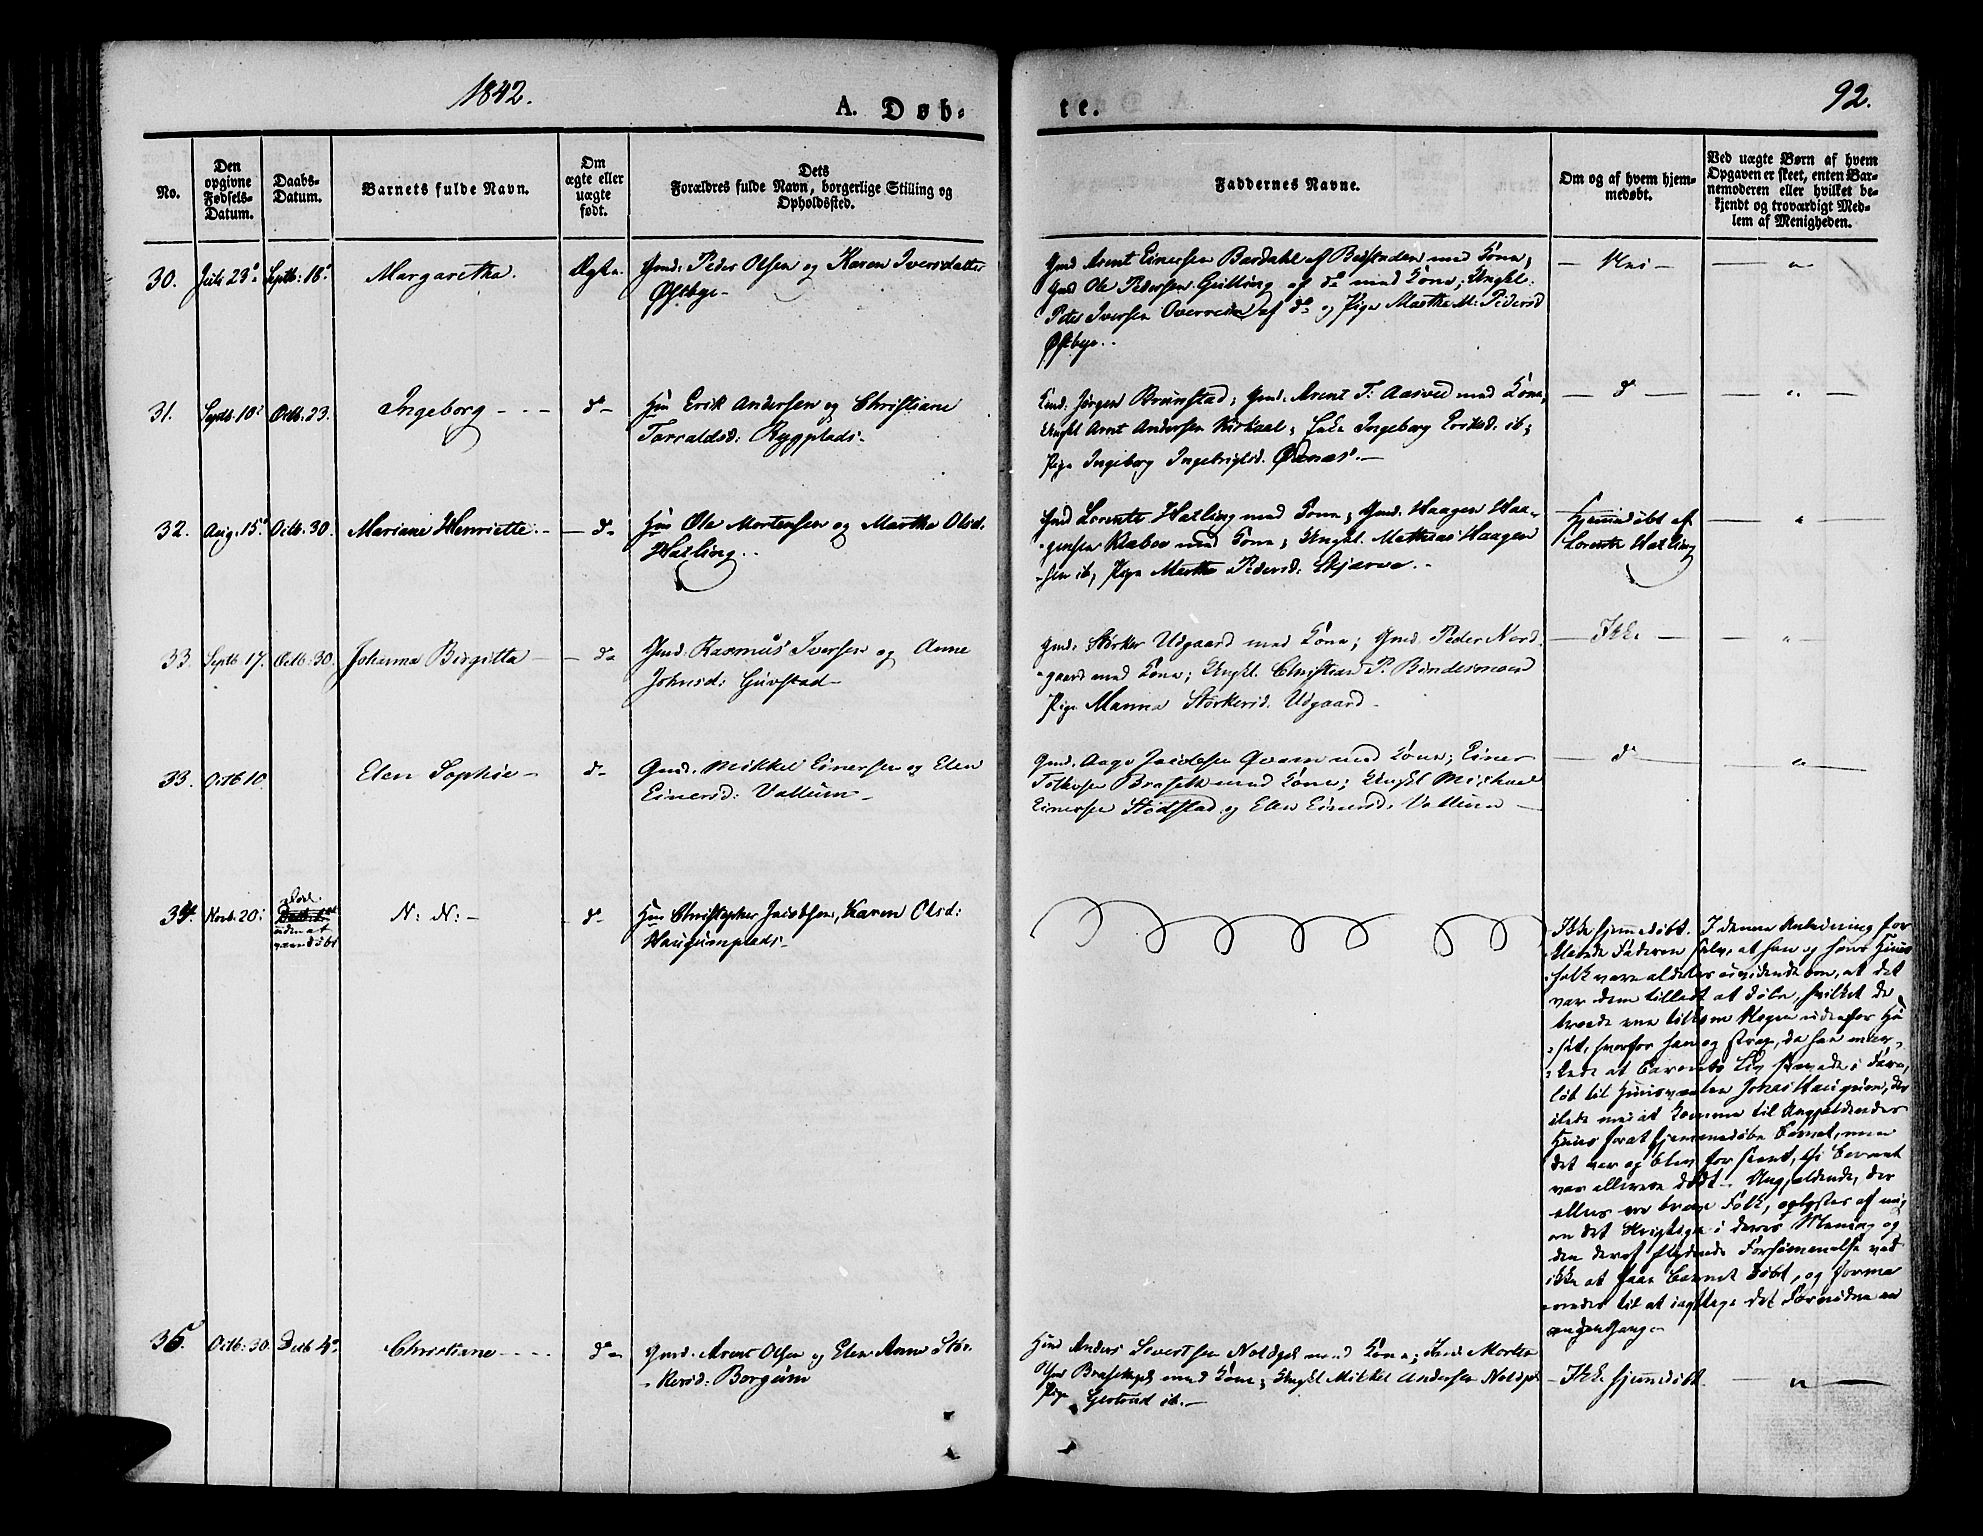 1842.
A. Døb-
te.
92.
No.
Den
opgivne
Fødsels-
Datum.
Daabs-
Datum.
Barnets fulde Navn.
Om
ægte eller
uægte
født.
Dets
Forældres fulde Navn, borgerlige Stilling og
Opholdssted.
Faddernes Navne.
Om og af hvem hjem-
medøbt.
Ved uægte Børn af hvem
Opgaven er skeet, enten Bar-
nemoderen eller hvilket be-
kjendt og troværdigt Med-
lem af Menigheden.
30. Juli 23de Septb: 18de Margaretha. Ægte Gmd: Peder Olsen og Karen Iversdatter
Østbye-
Gmd Arent Einersen Bardahl af Beistaden med Kone;
Gmd Ole Pedersen Gulling af do med Kone; Ungkl:
Peter Iversen Overrein af do og Pige Martha M: Pedersd
Østbye..
- Nei -
31. Septb: 10de Octb: 23. Ingeborg - - - do- Hm Erik Andersen og Christiane
Torraldsd: Rygplads-
Gmd. Jørgen Brunstad; Gmd. Arent T. Aasved med Kone,
Ungkl Arnt Andersen Kirkaal; Enke Ingeborg Eriksd: ib;
Pige Ingeborg Ingebrigtsd. Øxnæs.-
- do -
32. Aug. 15de Octb. 30. Mariane Henriette.- - do- Hm Ole Mortensen og Martha Olsd.
Hatling..
Gmd Lorents Hatling med Kone; Gmd. Haagen Haa-
gensen Klæbo med Kone; Ungkl. Mathias Haagen
sen ib; Pige Martha Pedersd: Skjerve.-
Hjemmedøbt af
Lorents Hatling
33. Septb 17. Octb: 30. Johanna Birgitta - - do Gmd: Rasmus Iversen og Anne
Johnsd: Guvstad-
Gmd: Størker Udgaard med Kone; Gmd Peder Nord-
gaard med Kone; Ungkl. Christian P. Bindesmoen
Pige Manna Størkersd. Udgaard-
- Ikke -
33. Octb 10. Elen Sophie - do- Gmd. Mikkel Einersen og Elen
Einersd: Vollum-
Gmd. Aage Jacobsen Qvam med Kone; Einer
Tolkesen Brasetk med Kone; Ungkl Michael
Einersen Stodstad og Elen Einersd: Vollum -
- do -
34. Novb. 20: død
uden at
være døbt N: N:- - do- Hm Christopher Jacobsen, Karen Olsd:
Haugumplads-
Ikke hjemmedøbt. I denne Anledning for
klarede Faderen selv, at han og hans Huus-
folk vare aldeles uvidende om, at det
var dem tilladt at døbe, hvilket de
troede ene tilkom Nogen udenfor Hu-
set, hvorfor han og strax, da han mær-
kede at Barnets Liv svævede i Fare,
løb til Huusmanden Johan Haugum, der
ilede med at komme til Angjeldendes
Huus for at hjemmedøbe Barnet, men
det var og blev for seent, thi Barnet
var allerede dødt- Angjeldende, der
ellers ere brave Folk, oplystes af mig
om det Urigtige i deres Mening og
den deraf flydende Forsømmelse ved
ikke at faae Barnet døbt, og forma
nedes til at iagttage det Fornødne en
anden Gang-
35. Octb: 30. Decb 4de Christiane - - - - do- Gmd. Arent Olsen og Elen Anna Stør-
kersd: Borgum
Hmd Anders Sivertsen Noldpek med Kone; Hmd Morten
Olsen Braseleøpk med Kone; Ungkl Mikkel Andersen Noldpek
Pige Gjertrud ib.-
- Ikke hjemmedøbt.